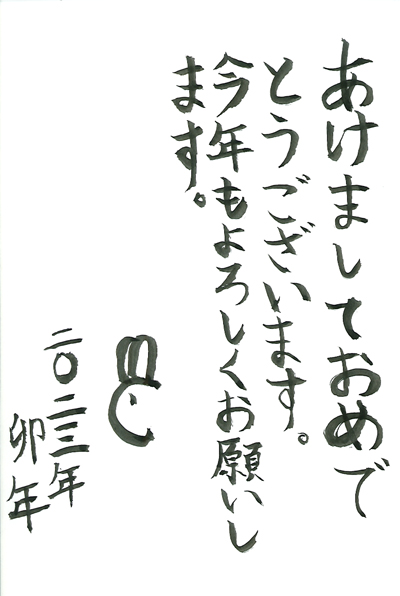 あけましておめで
とうございます。
今年もよろしくお願いし
ます。
二〇二三年
卯年